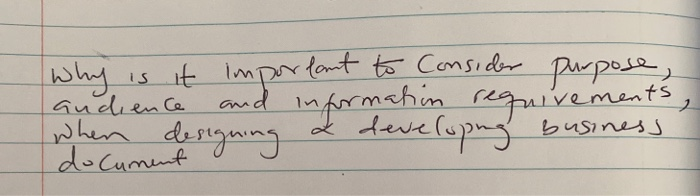 Why is it important to Consider purpose,
audience and information requirements,
when designing & developing business
document